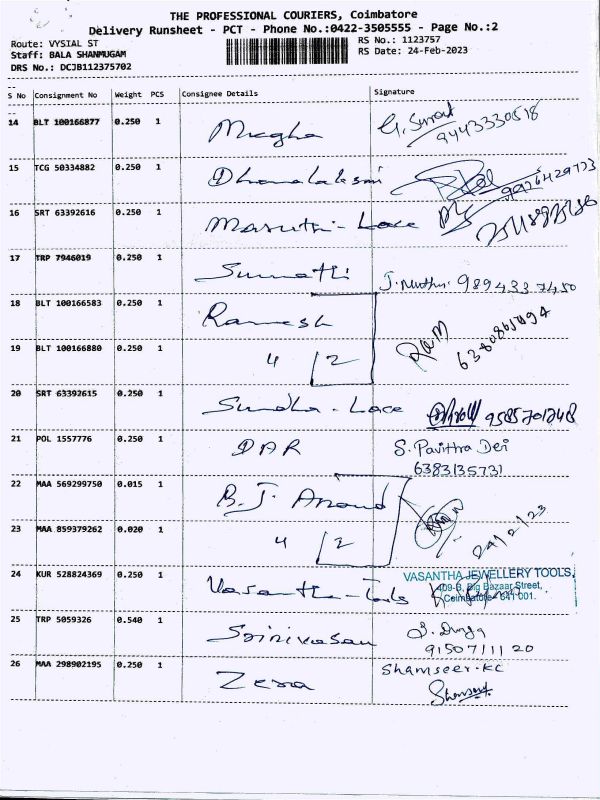 THE PROFESSIONAL COURIERS, Coimbatore
Delivery Runsheet - PCT - Phone No.:0422-3505555 - Page No.:2
Route: VYSIAL ST
RS No.: 1123757
Staff: BALA SHANMUGAM
RS Date: 24-Feb-2023
DRS No.: DCJB112375702
S No Consignment No Weight PCS Consignee Details Signature
14 BLT 100166877 0.250 1 Megha G. Surat
9443330518
15 TCG 50334882 0.250 1 Dhanalakshmi
16 SRT 63392616 0.250 1 Maruthi - Lace
17 TRP 7946019 0.250 1 Sumathi J. Muthu 9894337450
18 BLT 100166583 0.250 1 Ramesh RAM
6380865494
19 BLT 100166880 0.250 1 4 2
20 SRT 63392615 0.250 1 Sundha - Lace 9585701248
21 POL 1557776 0.250 1 DAR S. Pavithra Devi
6383135731
22 MAA 569299750 0.015 1 B.J. Anand
24/2/23
23 MAA 859379262 0.020 1 4 2
24 KUR 528824369 0.250 1 Vasantha - Tools
VASANTHA JEWELLERY TOOLS,
409-B, Big Bazaar Street,
Coimbatore - 641 001.
25 TRP 5059326 0.540 1 Srinivasan S. Durga
9150711120
26 MAA 298902195 0.250 1 Zena Shamseer.KC